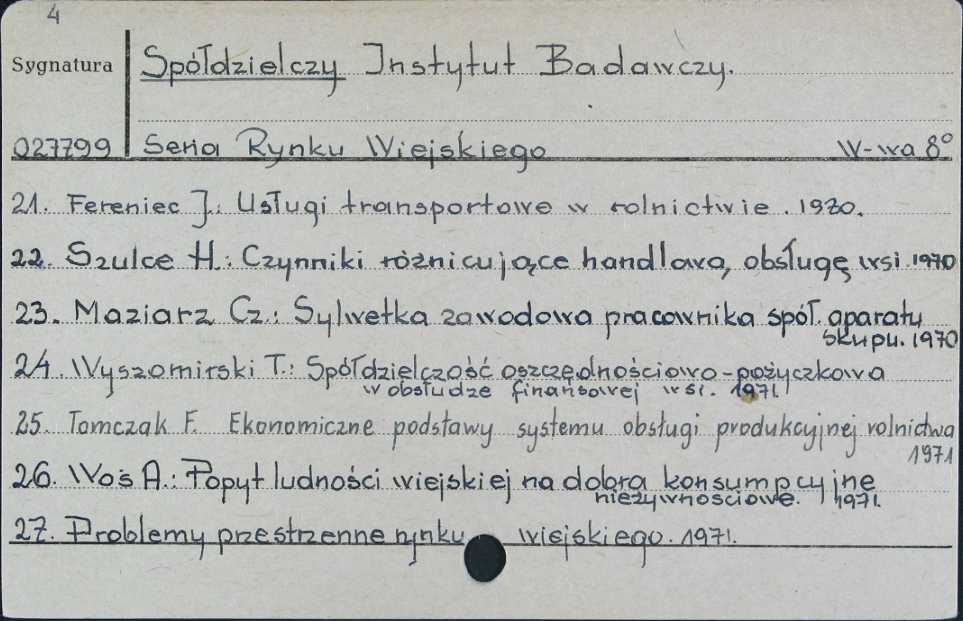 4
Sygnatura
Spółdzielczy Instytut Badawczy.
027799 Seria Rynku Wiejskiego W-wa 8°
21. Fereniec J.: Usługi transportowe w rolnictwie. 1970.
22. Szulce H.: Czynniki różnicujące handlową obsługę wsi. 1970
23. Maziarz Cz.: Sylwetka zawodowa pracownika spół. aparatu
skupu. 1970
24. Wyszomirski T.: Spółdzielczość oszczędnościowo-pożyczkowa
w obsłudze finansowej wsi. 1971.
25. Tomczak F. Ekonomiczne podstawy systemu obsługi produkcyjnej rolnictwa
1971
26. Woś A.: Popyt ludności wiejskiej na dobra konsumpcyjne
nieżywnościowe. 1971.
27. Problemy przestrzenne rynku wiejskiego. 1971.